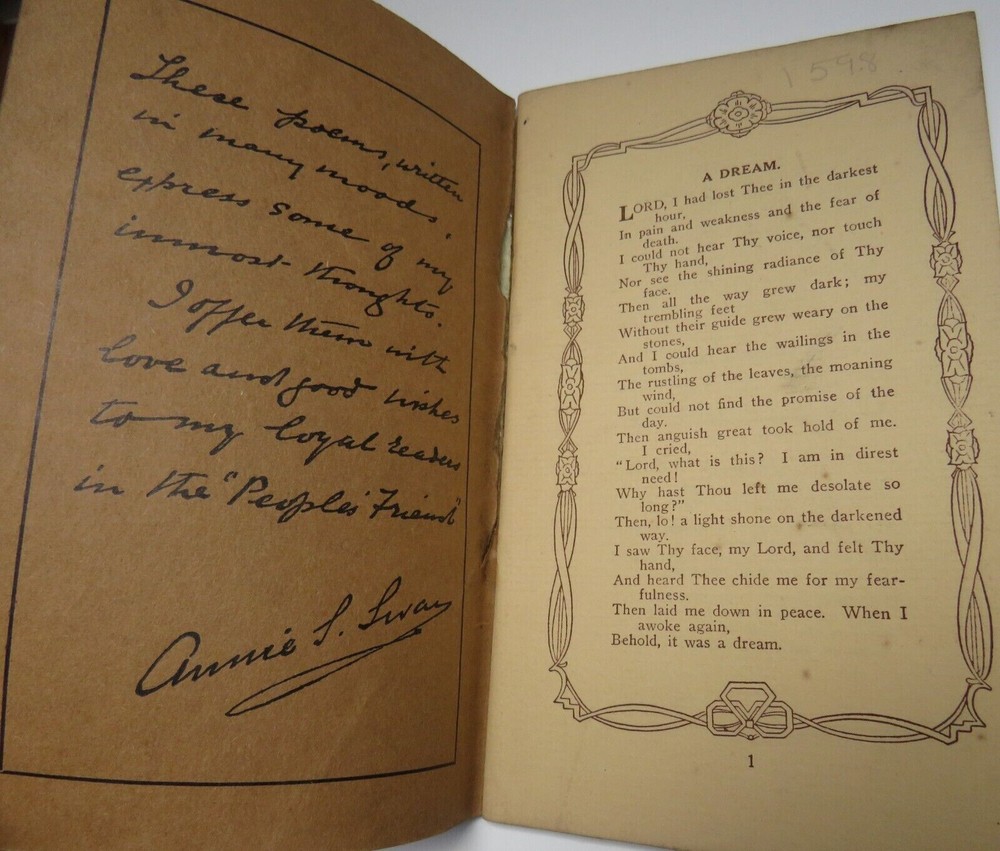 These poems, written
in many moods,
express some of my
inmost thoughts.
I offer them with
love and good wishes
to my loyal readers
in the "People's Friend"
Annie S. Swan
1598
A DREAM.
LORD, I had lost Thee in the darkest
hour,
In pain and weakness and the fear of
death.
I could not hear Thy voice, nor touch
Thy hand,
Nor see the shining radiance of Thy
face.
Then all the way grew dark; my
trembling feet
Without their guide grew weary on the
stones,
And I could hear the wailings in the
tombs,
The rustling of the leaves, the moaning
wind,
But could not find the promise of the
day.
Then anguish great took hold of me.
I cried,
"Lord, what is this? I am in direst
need!
Why hast Thou left me desolate so
long?"
Then, lo! a light shone on the darkened
way.
I saw Thy face, my Lord, and felt Thy
hand,
And heard Thee chide me for my fear-
fulness.
Then laid me down in peace. When I
awoke again,
Behold, it was a dream.
1